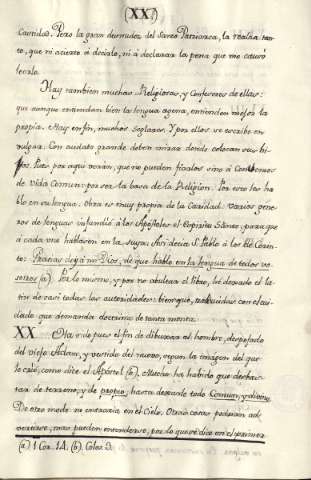 (XX)
Caridad. Pero la gran desnudez del Santo Patriarca, la realza tan-
to, que ni acierto à decirlo, ni à declarar la pena que me causó
leerlo.
Hay tambien muchas Religiosas, y Confesores de ellas:
que aunque entiendan bien la lengua agena, entienden mejor la
propia. Hay en fin, muchos Seglares. Y por ellos se escribe en
vulgar. Con cuidado grande deben mirar donde colocan sus hi-
jas. Pues por aqui verán, que no pueden fiarlas sino à Conventos
de Vida Comun: por ser la basa de la Religion. Por esto les ha-
blo en su lengua. Obra es muy propia de la Caridad. Varios gene-
ros de lenguas infundió à los Apostoles el Espiritu Santo, para que
à cada uno hablasen en la suya. Asi decia S. Pablo à los de Corin-
to: Gracias doy à mi Dios, de que hablo en la lengua de todos vo-
sotros (a). Por lo mismo, y por no abultar el libro, he dexado el la-
tin de casi todas las autoridades: bien que, traducidas con el cui-
dado que demanda doctrina de tanta monta.
XX. Obra de pues el fin de dibuxar al hombre, despojado
del viejo Adam, y vestido del nuevo, segun la imagen del que
lo crió, como dice el Apostol (b). Mucho ha habido que desbas-
tar de terreno, y de propio, hasta dexarlo todo Comun, y divino.
De otro modo no entraria en el Cielo. Otras cosas podrian ad-
vertirse, mas pueden entenderse, por lo que se dice en el primer
(a) 1 Cor. 14. (b). Colos. 3.